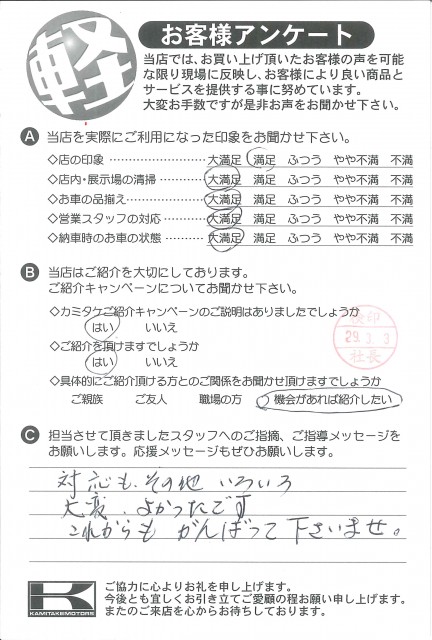 軽
お客様アンケート
当店では、お買い上げ頂いたお客様の声を可能
な限り現場に反映し、お客様により良い商品と
サービスを提供する事に努めています。
大変お手数ですが是非お声をお聞かせ下さい。
A 当店を実際にご利用になった印象をお聞かせ下さい。
◇店の印象 ………………… 大満足 満足 ふつう やや不満 不満
◇店内・展示場の清掃 ……… 大満足 満足 ふつう やや不満 不満
◇お車の品揃え …………… 大満足 満足 ふつう やや不満 不満
◇営業スタッフの対応 ……… 大満足 満足 ふつう やや不満 不満
◇納車時のお車の状態 ……… 大満足 満足 ふつう やや不満 不満
B 当店はご紹介を大切にしております。
ご紹介キャンペーンについてお聞かせ下さい。
◇カミタケご紹介キャンペーンのご説明はありましたでしょうか
はい いいえ
◇ご紹介を頂けますでしょうか
はい いいえ
◇具体的にご紹介頂ける方とのご関係をお聞かせ頂けますでしょうか
ご親族 ご友人 職場の方 機会があれば紹介したい
検印
29.3.3
社長
C 担当させて頂きましたスタッフへのご指摘、ご指導メッセージを
お願いします。応援メッセージもぜひお願いします。
対応も、その他 いろいろ
大変、よかったです
これからも がんばって 下さいませ。
K
KAMITAKEMOTORS
ご協力に心よりお礼を申し上げます。
今後とも宜しくお引き立てご愛顧の程お願い申し上げます。
またのご来店を心からお待ちしております。